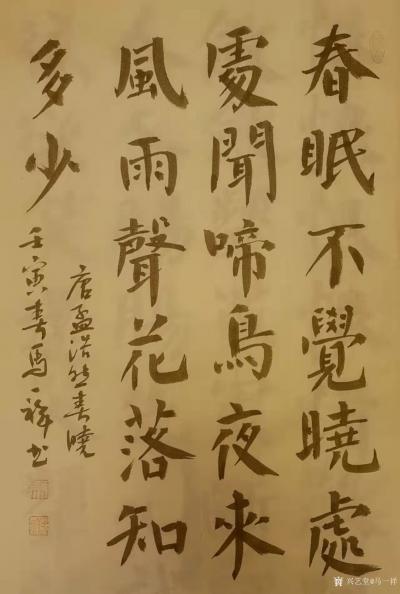 春眠不覺曉處
處聞啼鳥夜來
風雨聲花落知
多少
唐孟浩然春曉
壬寅春馬一祥书
兴艺堂@马一祥